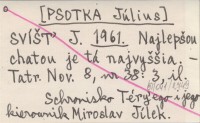 [PSOTKA Július]
SVÍŠŤ J. 1961. Najlepšou
chatou je tá najvyššia. –
Tatr. Nov. 8, nr 38: 3, il.
Schronisko Téry'ego i jego
kierownik Miroslav Jílek.